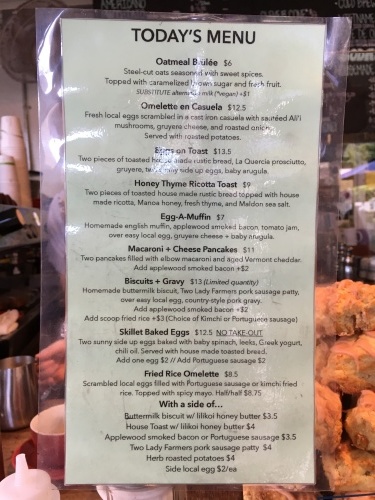 AMERICANO
COLD BREW
TODAY'S MENU
Oatmeal Brulée $6
Steel-cut oats seasoned with sweet spices.
Topped with caramelized brown sugar and fresh fruit.
SUBSTITUTE alternative milk (*vegan) +$1
Omelette en Casuela $12.5
Fresh local eggs scrambled in a cast iron casuela with sautéed Ali'i
mushrooms, gruyere cheese, and roasted onion.
Served with roasted potatoes.
Eggs on Toast $13.5
Two pieces of toasted house made rustic bread, La Quercia prosciutto,
gruyere, two sunny side up eggs, baby arugula.
Honey Thyme Ricotta Toast $9
Two pieces of toasted house made rustic bread topped with house
made ricotta, Manoa honey, fresh thyme, and Maldon sea salt.
Egg-A-Muffin $7
Homemade english muffin, applewood smoked bacon, tomato jam,
over easy local egg, gruyere cheese + baby arugula.
Macaroni + Cheese Pancakes $11
Two pancakes filled with elbow macaroni and aged Vermont cheddar.
Add applewood smoked bacon +$2
Biscuits + Gravy $13 (Limited quantity)
Homemade buttermilk biscuit, Two Lady Farmers pork sausage patty,
over easy local egg, country-style pork gravy.
Add applewood smoked bacon +$2
Add scoop fried rice +$3 (Choice of Kimchi or Portuguese sausage)
Skillet Baked Eggs $12.5 NO TAKE-OUT
Two sunny side up eggs baked with baby spinach, leeks, Greek yogurt,
chili oil. Served with house made toasted bread.
Add one egg $2 // Add Portuguese sausage $2
Fried Rice Omelette $8.5
Scrambled local eggs filled with Portuguese sausage or kimchi fried
rice. Topped with spicy mayo. Half/half $8.75
With a side of…
Buttermilk biscuit w/ lilikoi honey butter $3.5
House Toast w/ lilikoi honey butter $4
Applewood smoked bacon or Portuguese sausage $3.5
Two Lady Farmers pork sausage patty $4
Herb roasted potatoes $4
Side local egg $2/ea